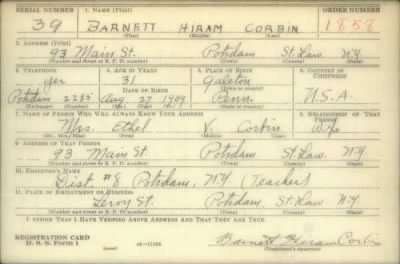 SERIAL NUMBER 1. NAME (Print) ORDER NUMBER
39 BARNETT HIRAM CORBIN 1858
(First) (Middle) (Last)
2. ADDRESS (Print)
93 Main St. Potsdam St. Law N.Y.
(Number and street or R. F. D. number) (Town) (County) (State)
3. TELEPHONE 4. AGE IN YEARS 5. PLACE OF BIRTH 6. COUNTRY OF CITIZENSHIP
yes 31 Galeton
DATE OF BIRTH (Town or county)
Potsdam 2285 Aug 27 1909 Penn. U.S.A.
(Exchange) (Number) (Mo.) (Day) (Yr.) (State or country)
7. NAME OF PERSON WHO WILL ALWAYS KNOW YOUR ADDRESS 8. RELATIONSHIP OF THAT PERSON
Mrs. Ethel V. Corbin Wife
(Mr., Mrs., Miss) (First) (Middle) (Last)
9. ADDRESS OF THAT PERSON
93 Main St. Potsdam St. Law. N.Y.
(Number and street or R. F. D. number) (Town) (County) (State)
10. EMPLOYER'S NAME
Dist. #8 Potsdam, N.Y. (Teacher)
11. PLACE OF EMPLOYMENT OR BUSINESS
Leroy St. Potsdam, St. Law N.Y.
(Number and street or R. F. D. number) (Town) (County) (State)
I AFFIRM THAT I HAVE VERIFIED ABOVE ANSWERS AND THAT THEY ARE TRUE.
REGISTRATION CARD
D. S. S. Form 1 (over) Barnett Hiram Corbin
(Registrant's signature)